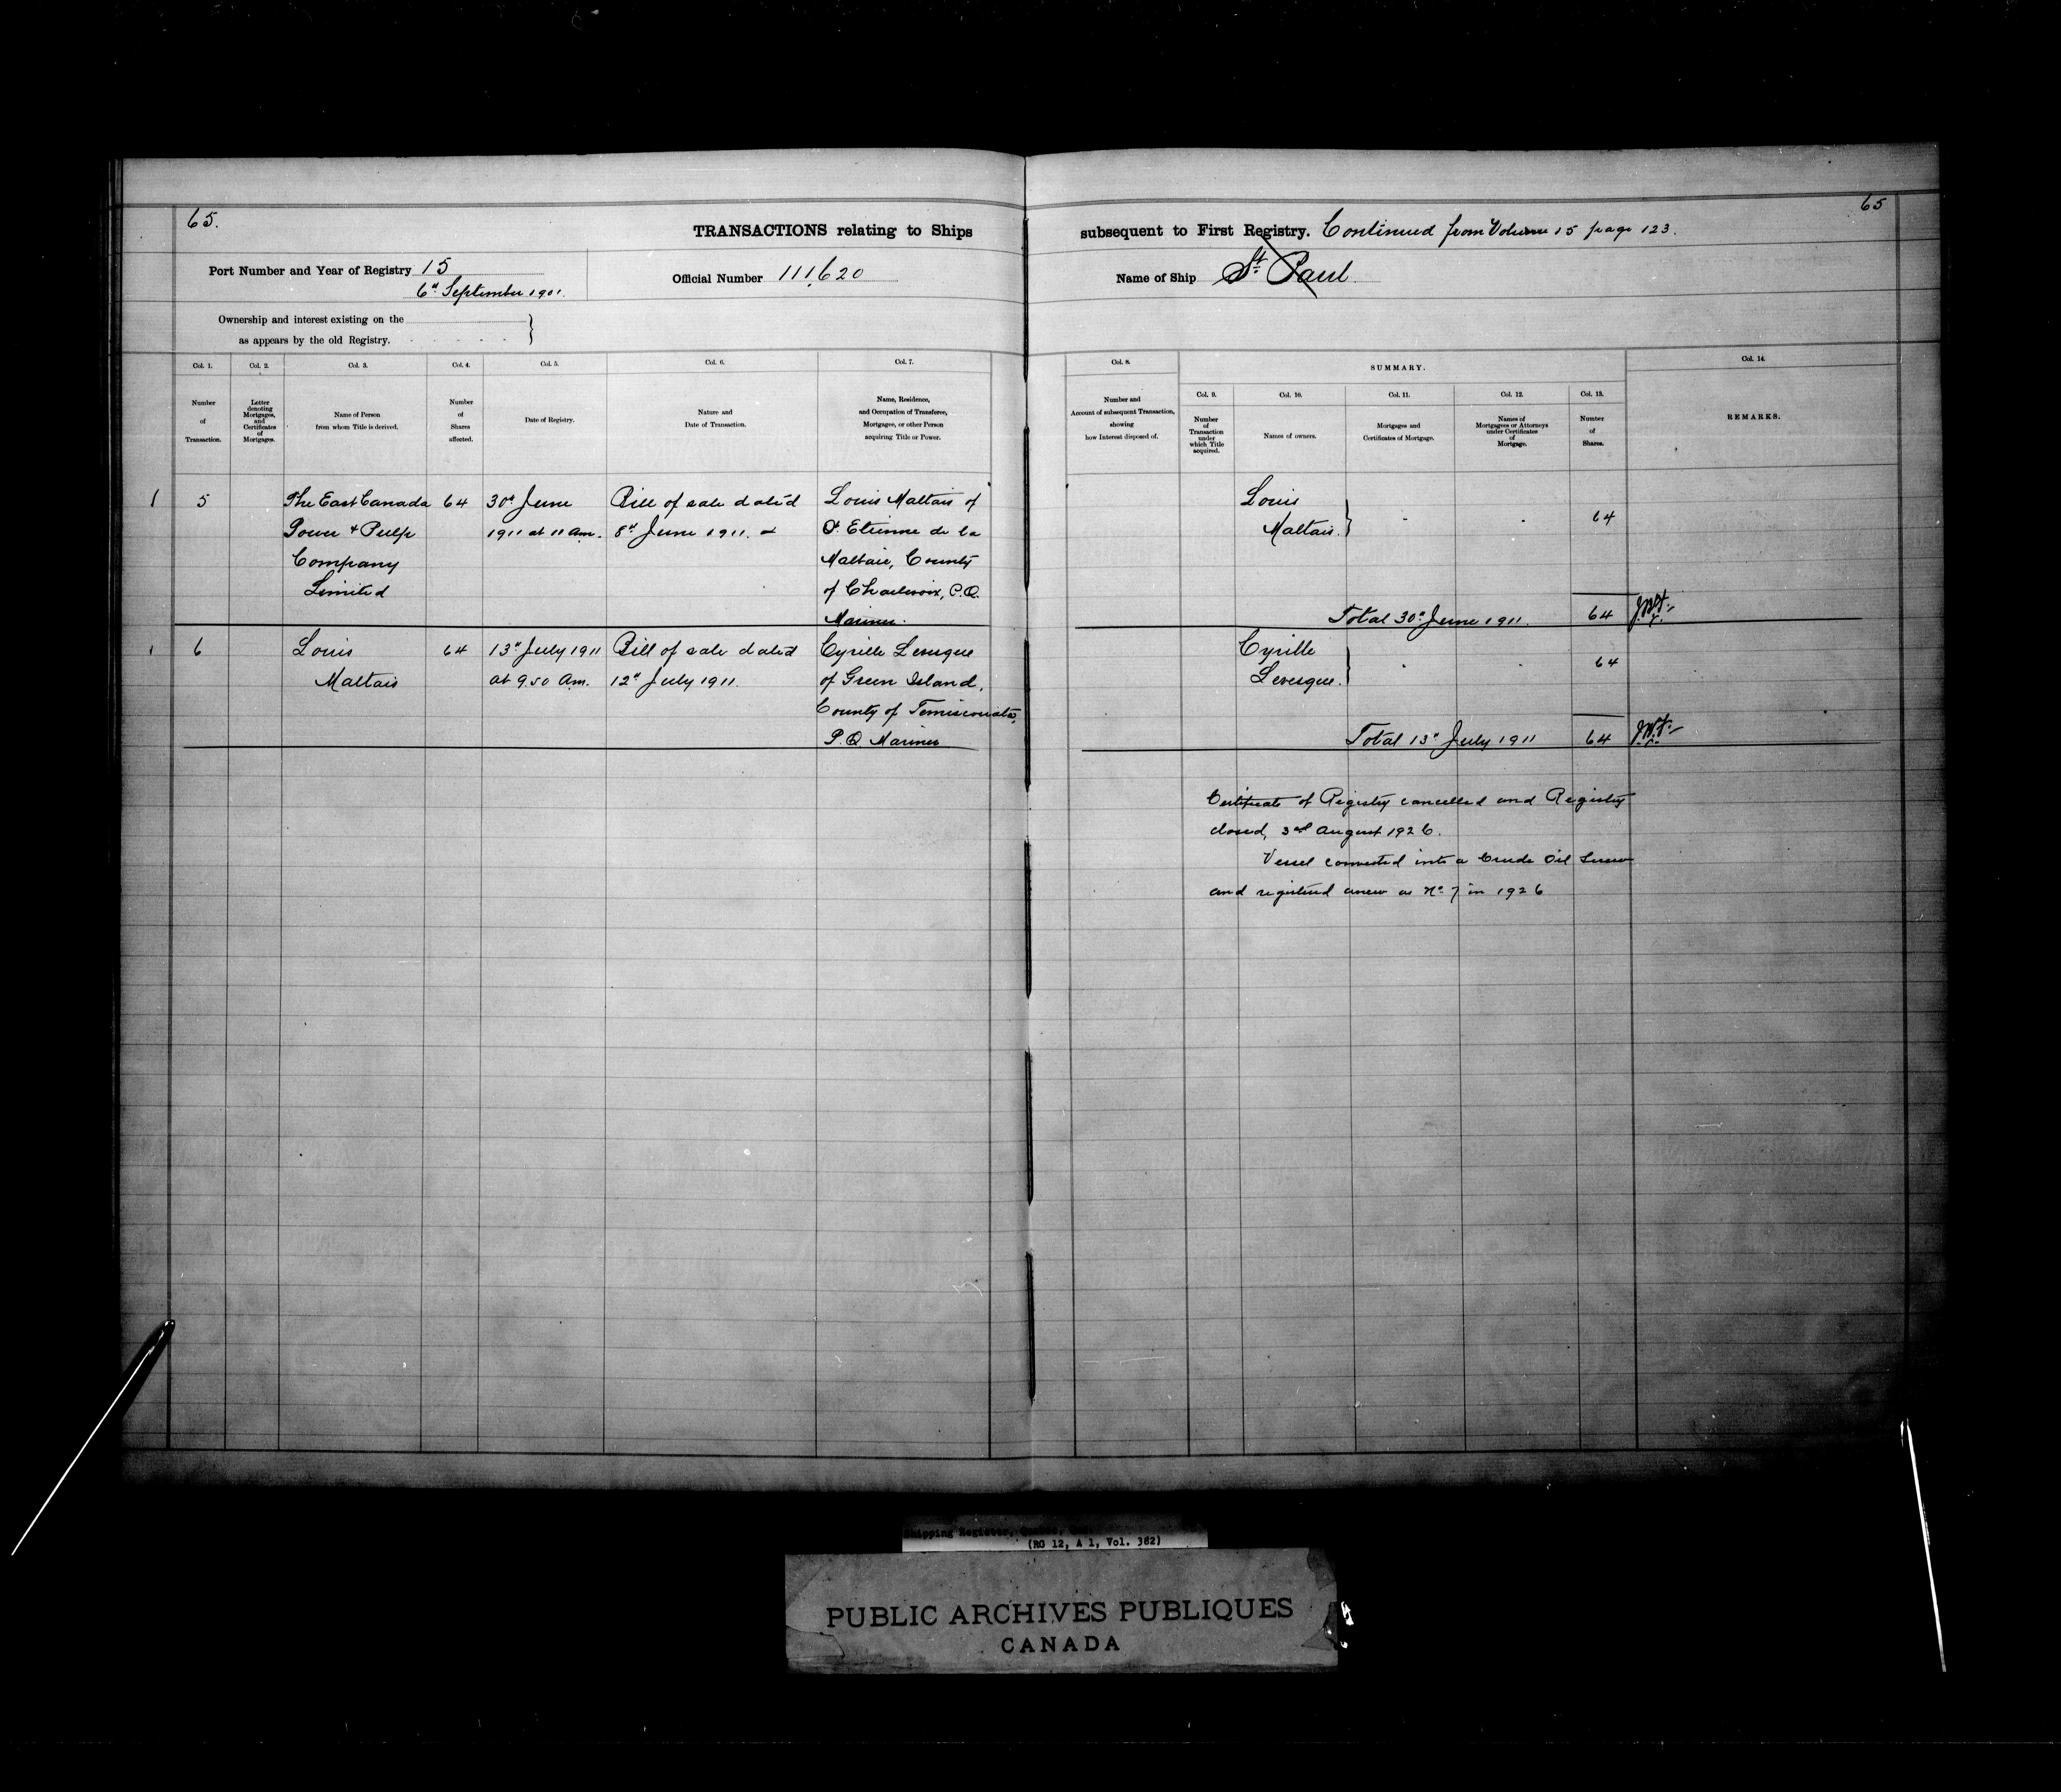 65.
TRANSACTIONS relating to Ships
Port Number and Year of Registry 15
6th September 1901.
Official Number 111,620
Ownership and interest existing on the
as appears by the old Registry.
65
subsequent to First Registry. Continued from Volume 15 page 123.
Name of Ship St Paul
Col. 1.
Number
of
Transaction.
Col. 2.
Letter
denoting
Mortgages,
and
Certificates
of
Mortgages.
Col. 3.
Name of Person
from whom Title is derived.
Col. 4.
Number
of
Shares
affected.
Col. 5.
Date of Registry.
Col. 6.
Nature and
Date of Transaction.
Col. 7.
Name, Residence,
and Occupation of Transferee,
Mortgagee, or other Person
acquiring Title or Power.
Col. 8.
Number and
Account of subsequent Transaction,
showing
how Interest disposed of.
SUMMARY.
Col. 9.
Number
of
Transaction
under
which Title
acquired.
Col. 10.
Names of owners.
Col. 11.
Mortgages and
Certificates of Mortgage.
Col. 12.
Names of
Mortgagees or Attorneys
under Certificates
of
Mortgage.
Col. 13.
Number
of
Shares.
Col. 14.
REMARKS.
1
5
The East Canada
Power & Pulp
Company
Limited
64
30th June
1911 at 11 am.
Bill of sale dated
8th June 1911.
Louis Maltais of
St. Etienne de la
Malbaie, County
of Charlevoix, P.Q.
Mariner.
Louis
Maltais.
64
Total 30th June 1911.
64
1
6
Louis
Maltais
64
13th July 1911
at 9.50 Am.
Bill of sale dated
12th July 1911.
Cyrille Levesque
of Green Island,
County of Temiscouata,
P.Q. Mariner
Cyrille
Levesque.
64
Total 13th July 1911
64
Certificate of Registry cancelled and Registry
closed, 3rd August 1926.
Vessel converted into a Crude Oil Screw
and registered anew as No. 7 in 1926
Shipping Register,
(RG 12, A 1, Vol. 382)
PUBLIC ARCHIVES PUBLIQUES
CANADA